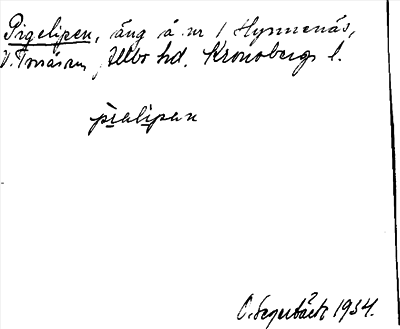 Pigelipen, äng å nr 1 Hynnenäs,
V. Torsås sn, Allbo hd. Kronobergs l.
pìalipan
O. Segerbäck 1934.